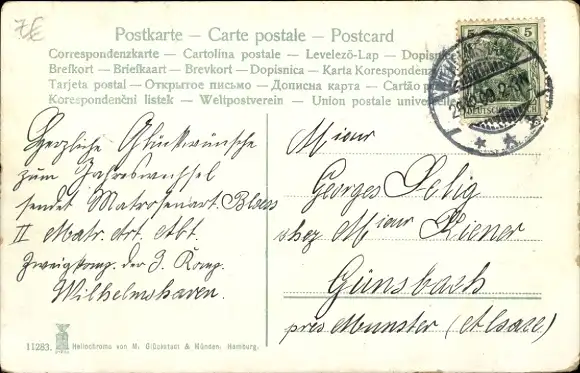 7€
Postkarte — Carte postale — Postcard
Correspondenzkarte — Cartolina postale — Levelező-Lap — Dopisn
Brefkort — Briefkaart — Brevkort — Dopisnica — Karta Korespondenc
Tarjeta postal — Открытое письмо — Дописна карта — Cartão p
Korespondenční listek — Weltpostverein — Union postale universelle
5 5
WILHELMSHAVEN
DEUTSCHES
Herzliche Glückwünsche
zum Jahreswechsel
sendet Matrosenart. Bloess
II Matr. Art. Abt.
Zweigkomp. der 3. Komp.
Wilhelmshaven.
Mieur
Georges Selig
chez Mieur Kiener
Günsbach
près Munster (Alsace)
11283.
Heliochrome von M. Glückstadt & Münden, Hamburg.